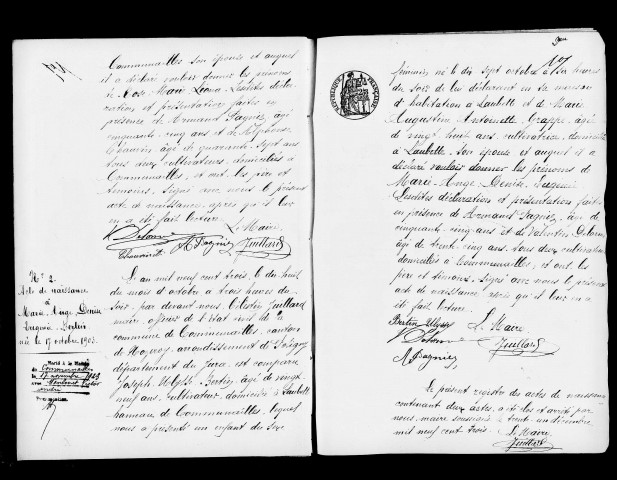 Communailles son épouse et auquel
il a déclaré vouloir donner les prénoms
de Rose Marie Léona. Lesdites décla-
ration et présentation faites en
présence de Armand Pagnier, âgé
cinquante cinq ans et de
âgé de quarante sept ans
tous deux cultivateurs, domiciliés à
Communailles, et ont, les père et
témoins, signé avec nous le présent
acte de naissance, après qu'il leur
en a été fait lecture.
Le Maire
A. Pagnier Juillard
N° 2
Acte de naissance
à
Marie Ange Denise
Eugénie Bertin
née le 17 octobre 1903.
Marié à la Mairie
de Communailles
le 17 novembre 1923
avec
L'an mil neuf cent trois, le dix huit
du mois d'octobre à trois heures du
soir, par devant nous Célestin Juillard
maire, officier de l'état civil de la
commune de Communailles, canton
de Nozeroy, arrondissement de Poligny
département du Jura, est comparu
Joseph Ulysse Bertin, âgé de vingt
neuf ans, cultivateur, domicilié à Laubette
hameau de Communailles, lequel
nous a présenté un enfant du sexe
RÉPUBLIQUE FRANÇAISE
féminin né le dix sept octobre à six heures
du soir de lui déclarant en sa maison
d'habitation à Laubette et de Marie
Augustine Antoinette Grappe, âgée
de vingt huit ans, cultivatrice, domiciliée
à Laubette, son épouse et auquel il a
déclaré vouloir donner les prénoms de
Marie-Ange-Denise-Eugénie
Lesdites déclaration et présentation faites
en présence de Armand Pagnier, âgé de
cinquante-cinq ans et de Valentin
âgé de trente cinq ans, tous deux cultivateurs
domiciliés à Communailles, et ont, les
père et témoins, signé avec nous le présent
acte de naissance après qu'il leur en a
été fait lecture.
Bertin Ulysse Le Maire,
Juillard
A. Pagnier
Le présent registre des actes de naissance
contenant deux actes, a été clos et arrêté par
nous, maire soussigné le trente un décembre
mil neuf cent trois. Le Maire
Juillard